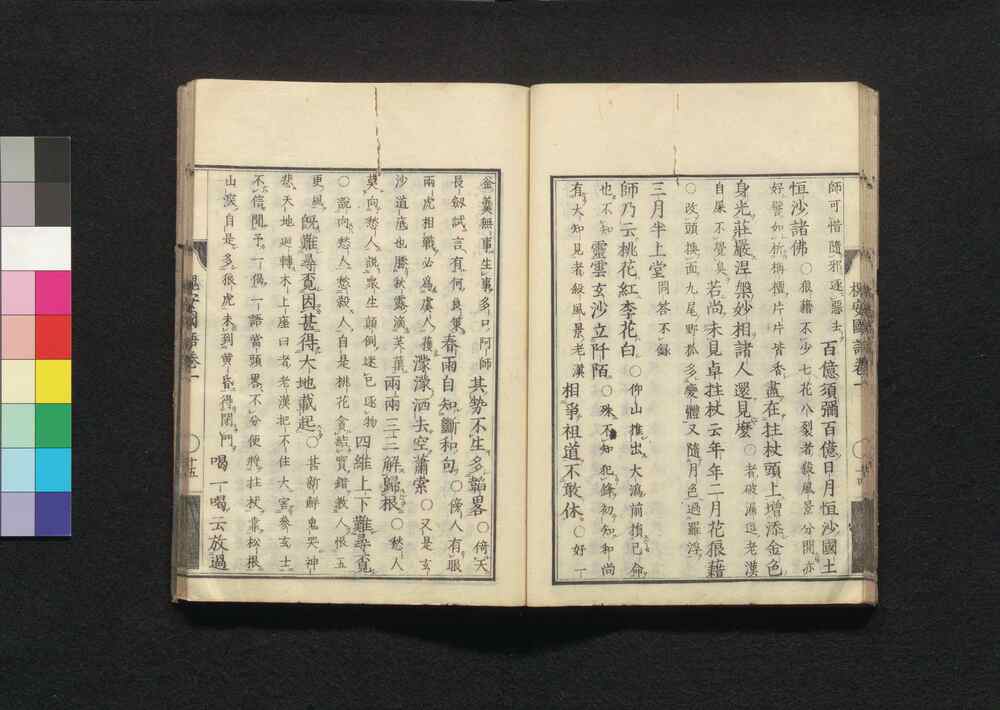 師可惜隨邪逐惡去百億須彌百億日月恒沙國土
恒沙諸佛〇狼藉不少七花八裂者殺風景分開亦
好譬如析栴檀片片皆香盡在拄杖頭上增添金色
身光莊嚴涅槃妙相諸人還見麼〇者破漏逗老漢
自屎不覺臭若尚未見卓拄杖云年年二月花狼藉
〇改頭換面九尾野狐多變體又隨月色過羅浮
三月半上堂問答不錄
師乃云桃花紅李花白〇仰山推出大溈前損己命
也不知靈雲玄沙立阡陌〇殊不知犯鋒初知和尚
有大知見者殺風景老漢相爭祖道不敢休〇好一
釜羹無事生事多口阿師其勢不生多韜畧〇倚天
長劒試言有何良策春雨自知斷和句〇傍人有眼
兩虎相戰必為虞人獲濛濛洒去空蕭索〇又是玄
沙道底也勝秋露滴芙蕖兩兩三三解歸根〇愁人
莫向愁人說衆生顛倒迷己逐物四維上下難尋覓
〇說向愁人愁殺人自是桃花貪結實錯教人恨五
更風既難尋覓因甚得大地載起〇甚新鮮鬼哭神
悲天地迴轉木上座曰者老漢把不住大害參玄士
不信聞予一偈一語當頭畧不分便將拄杖靠松根
山深自是多狼虎未到黃昏得閉門喝一喝云放過
槐安國語卷一
〇十五